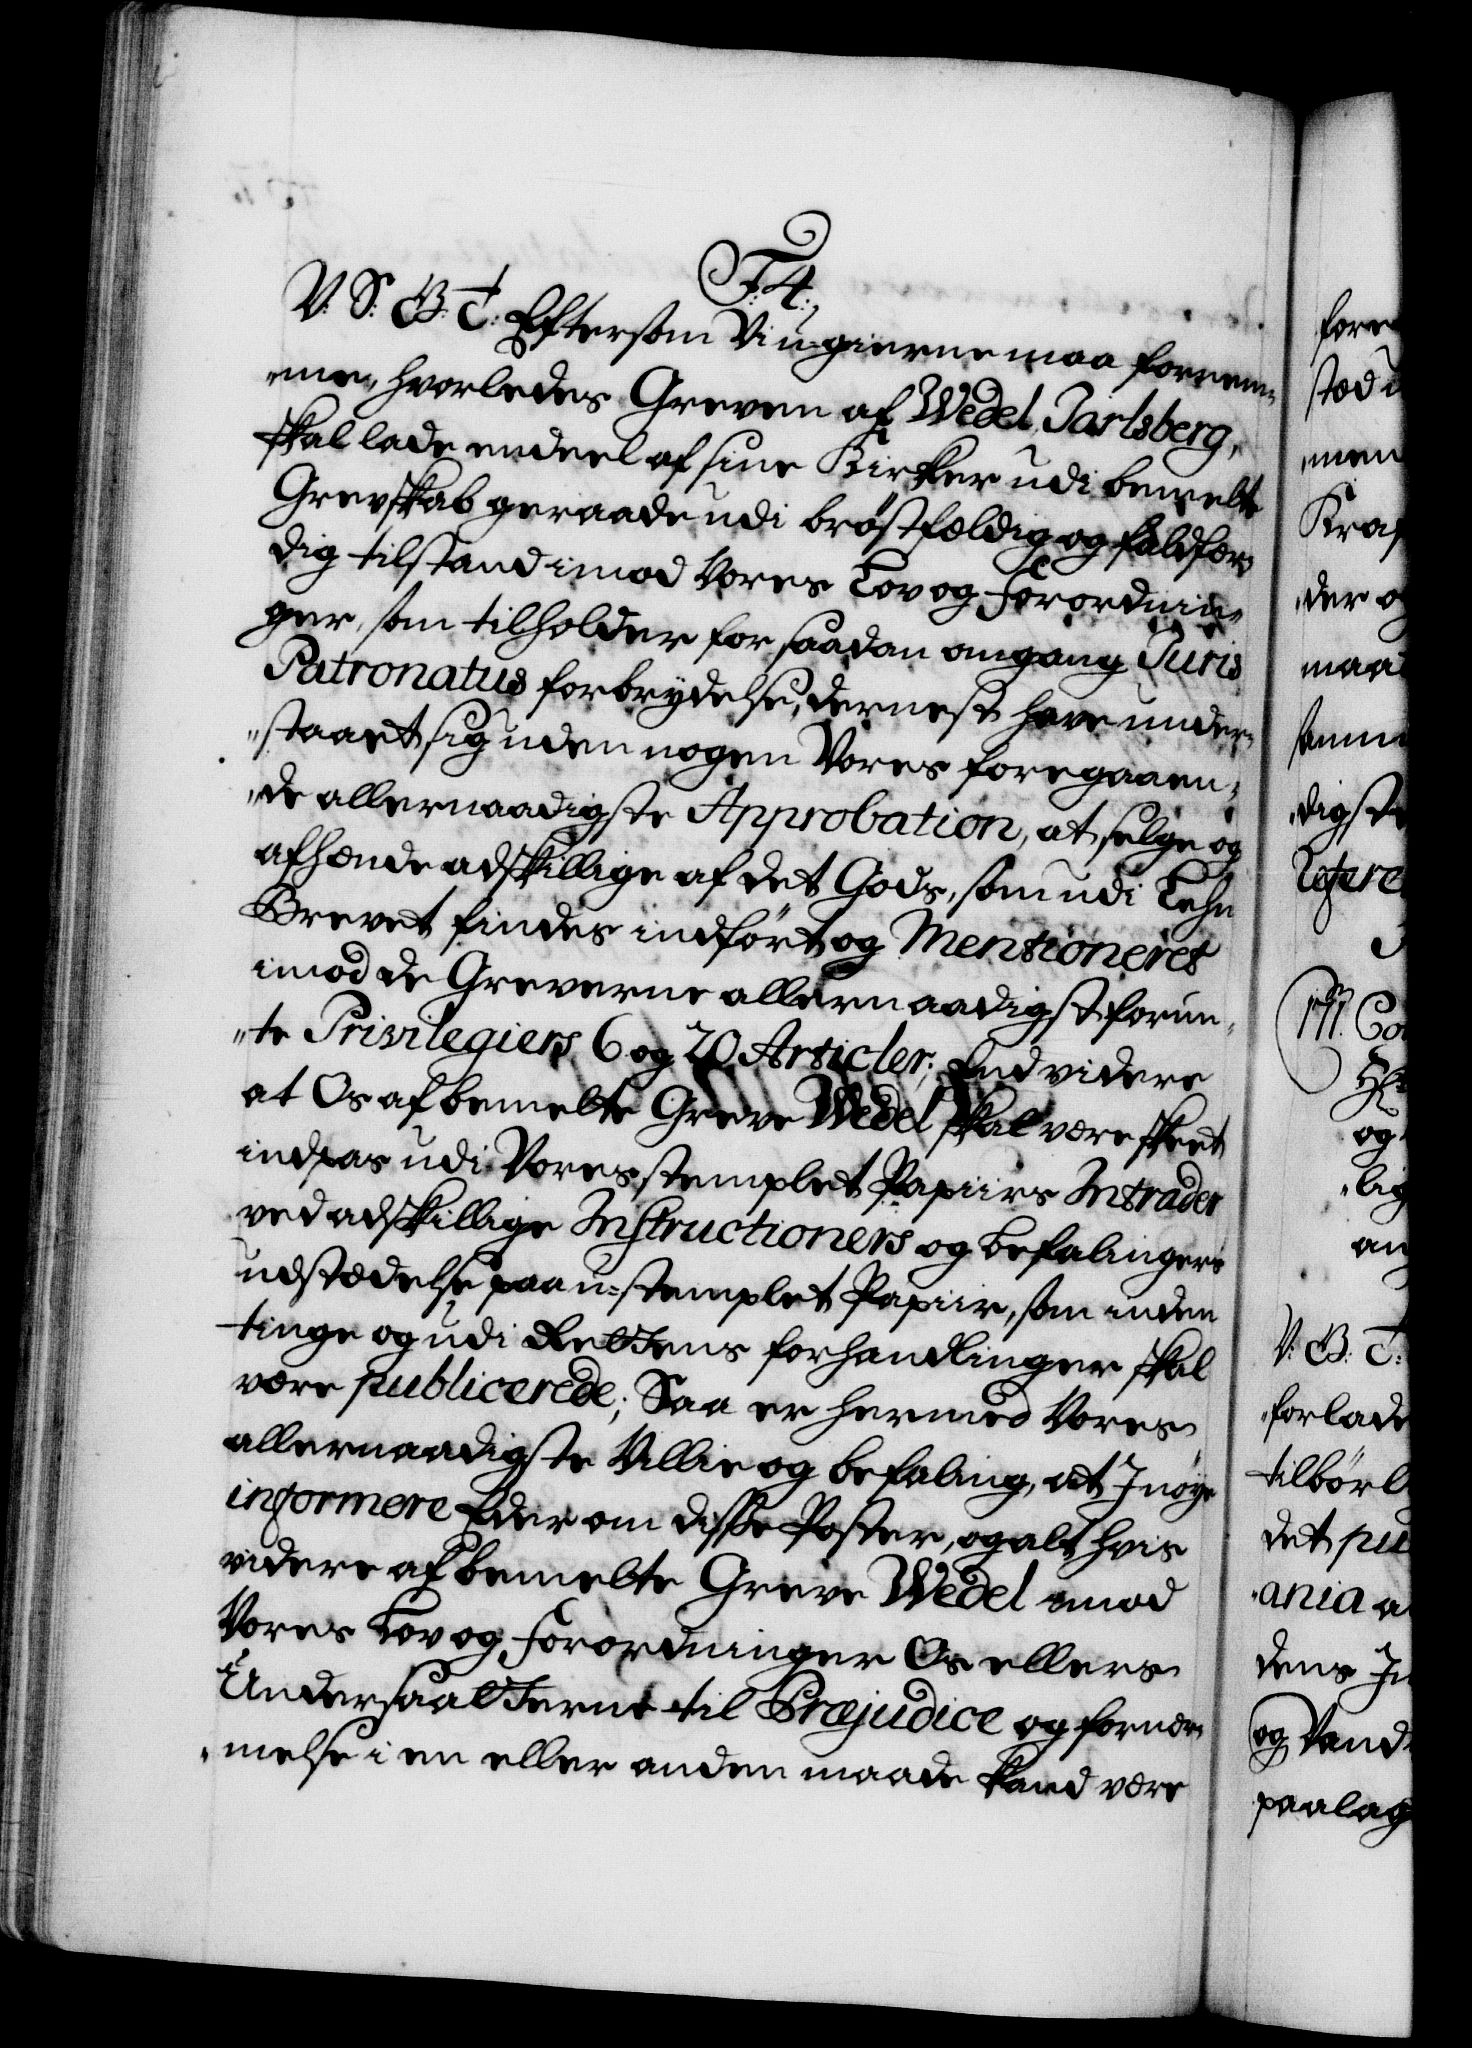 F: 4:
V. S. G. T: Eftersom Vi u-gierne maa fornem„
„me, hvorledes Greven af Wedel Jarlsberg,
skal lade endeel af sine Kirker udi bemelte
Grevskab geraade udi brøstfældig og faldfær„
dig tilstand imod Vores Lov og Forordnin„
ger, som tilholder for saadan omgang Juris
Patronatus forbrydelse, dernest have under„
„staaet sig uden nogen Vores foregaaen„
„de allernaadigste Approbation, at selge og
afhænde adskillige af det Gods, som udi Lehn
Brevet findes indført og Mentioneret
imod de Greverne allernaadigst forun„
„te Privilegiers 6 og 20 Articler; End videre
at Os af bemelte Greve Wedel skal være skeet
indpas udi Vores stemplet Papiirs Intrader
ved adskillige Instructioners og befalingers
udstædelse paa u-stemplet Papiir, som inden
tinge og udi Rettens forhandlinger skal
være publicerede; Saa er hermed Vores
allernaadigste Villie og befaling, at I nøye
informere Eder om disse Poster, og alt hvis
videre af bemelte Greve Wedel imod
Vores Lov og Forordninger Os ellers
Undersaatterne til Præjudice og fornær„
„melse i en eller anden maade kand være
fore
stæd
men
der o
maa
digste
Refere
M. Co
og
lig
V. G. T:
„forlade
tilbørl
det pu
„ania a
dens In
og Vand
paalag